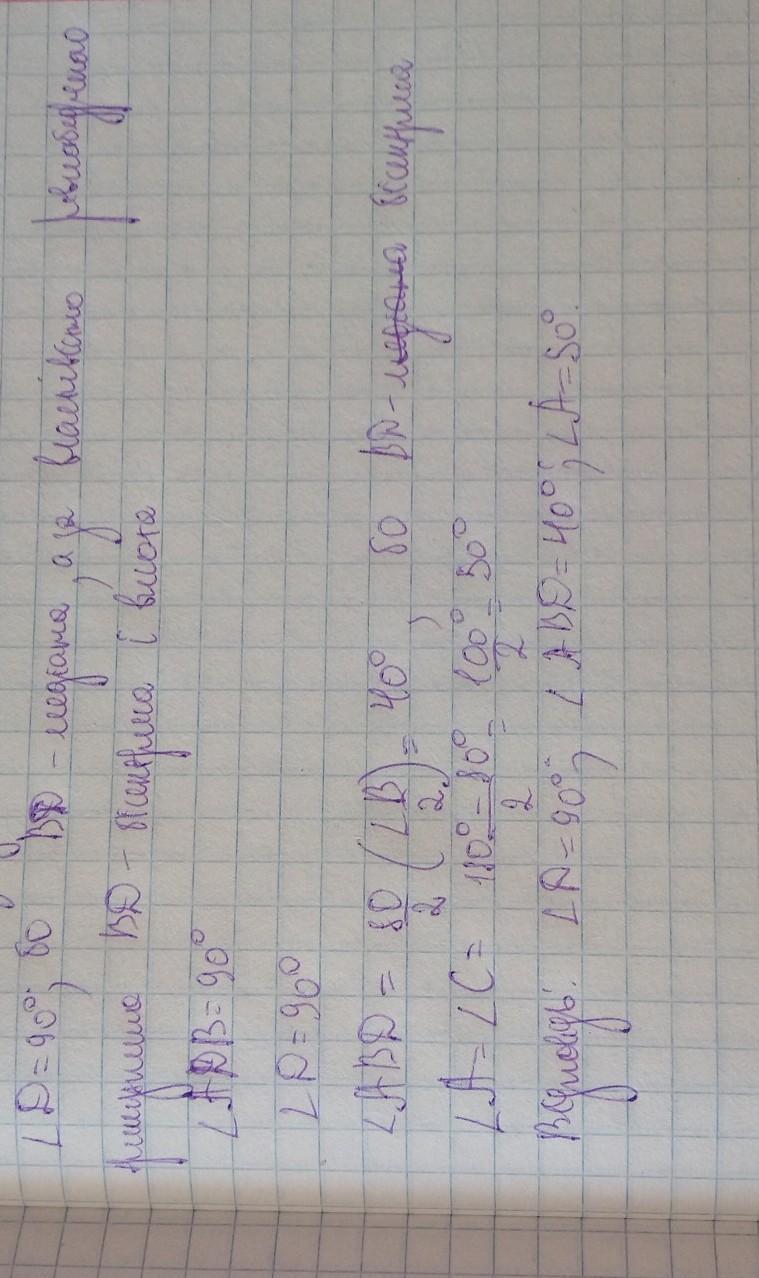 ∠D = 90°, бо BD - медіана, а за властивістю рівнобедреного
трикутника BD - бісектриса і висота
∠ADB = 90°
∠D = 90°
∠ABD = 80/2 (∠B/2) = 40°, бо BD - медіана бісектриса
∠A = ∠C = (180° - 80°)/2 = 100°/2 = 50°
Відповідь: ∠D = 90°; ∠ABD = 40°; ∠A = 50°.